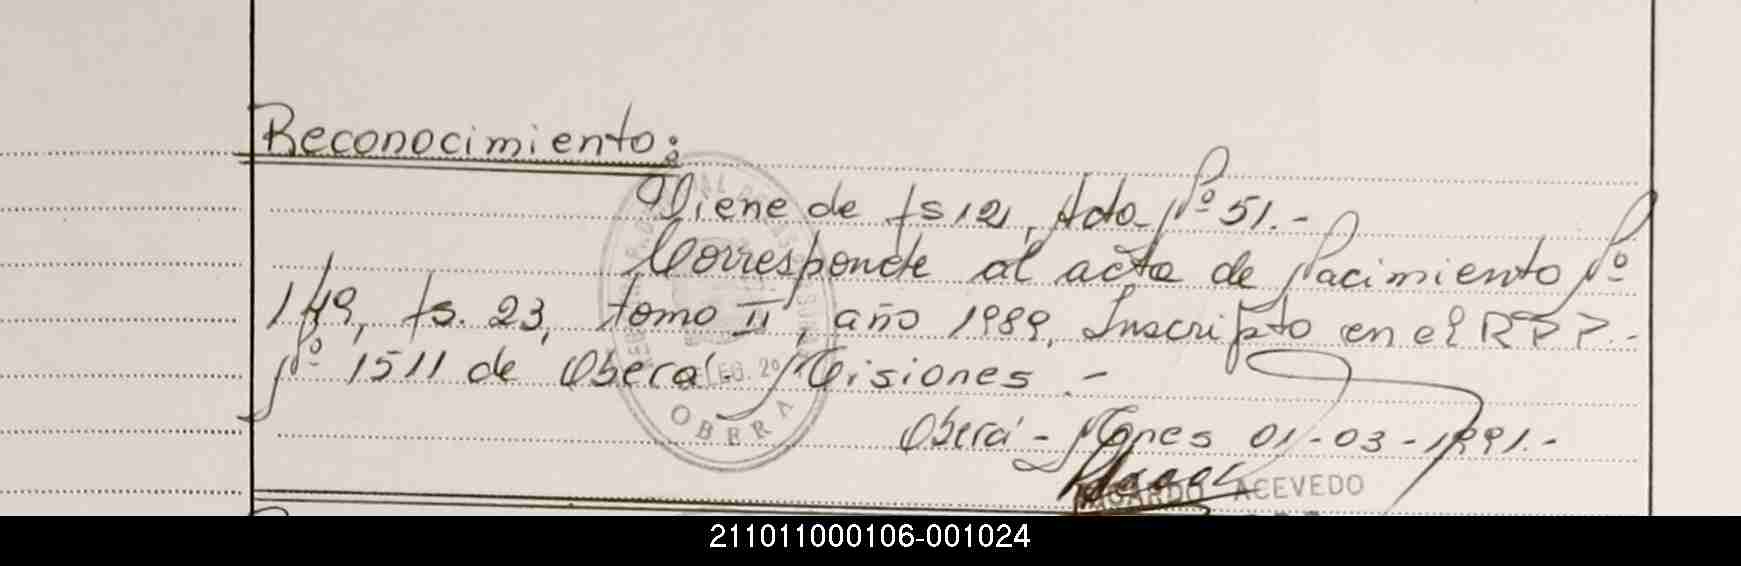 Reconocimiento:
Viene de fs 121, Acta Nº 51.-
Corresponde al acta de Nacimiento Nº
149, fs. 23, tomo II, año 1989, Inscripto en el R.P.P.-
Nº 1511 de Oberá - Misiones.-
Oberá - Mnes 01-03-1991.-
ACEVEDO
OBERA
211011000106-001024